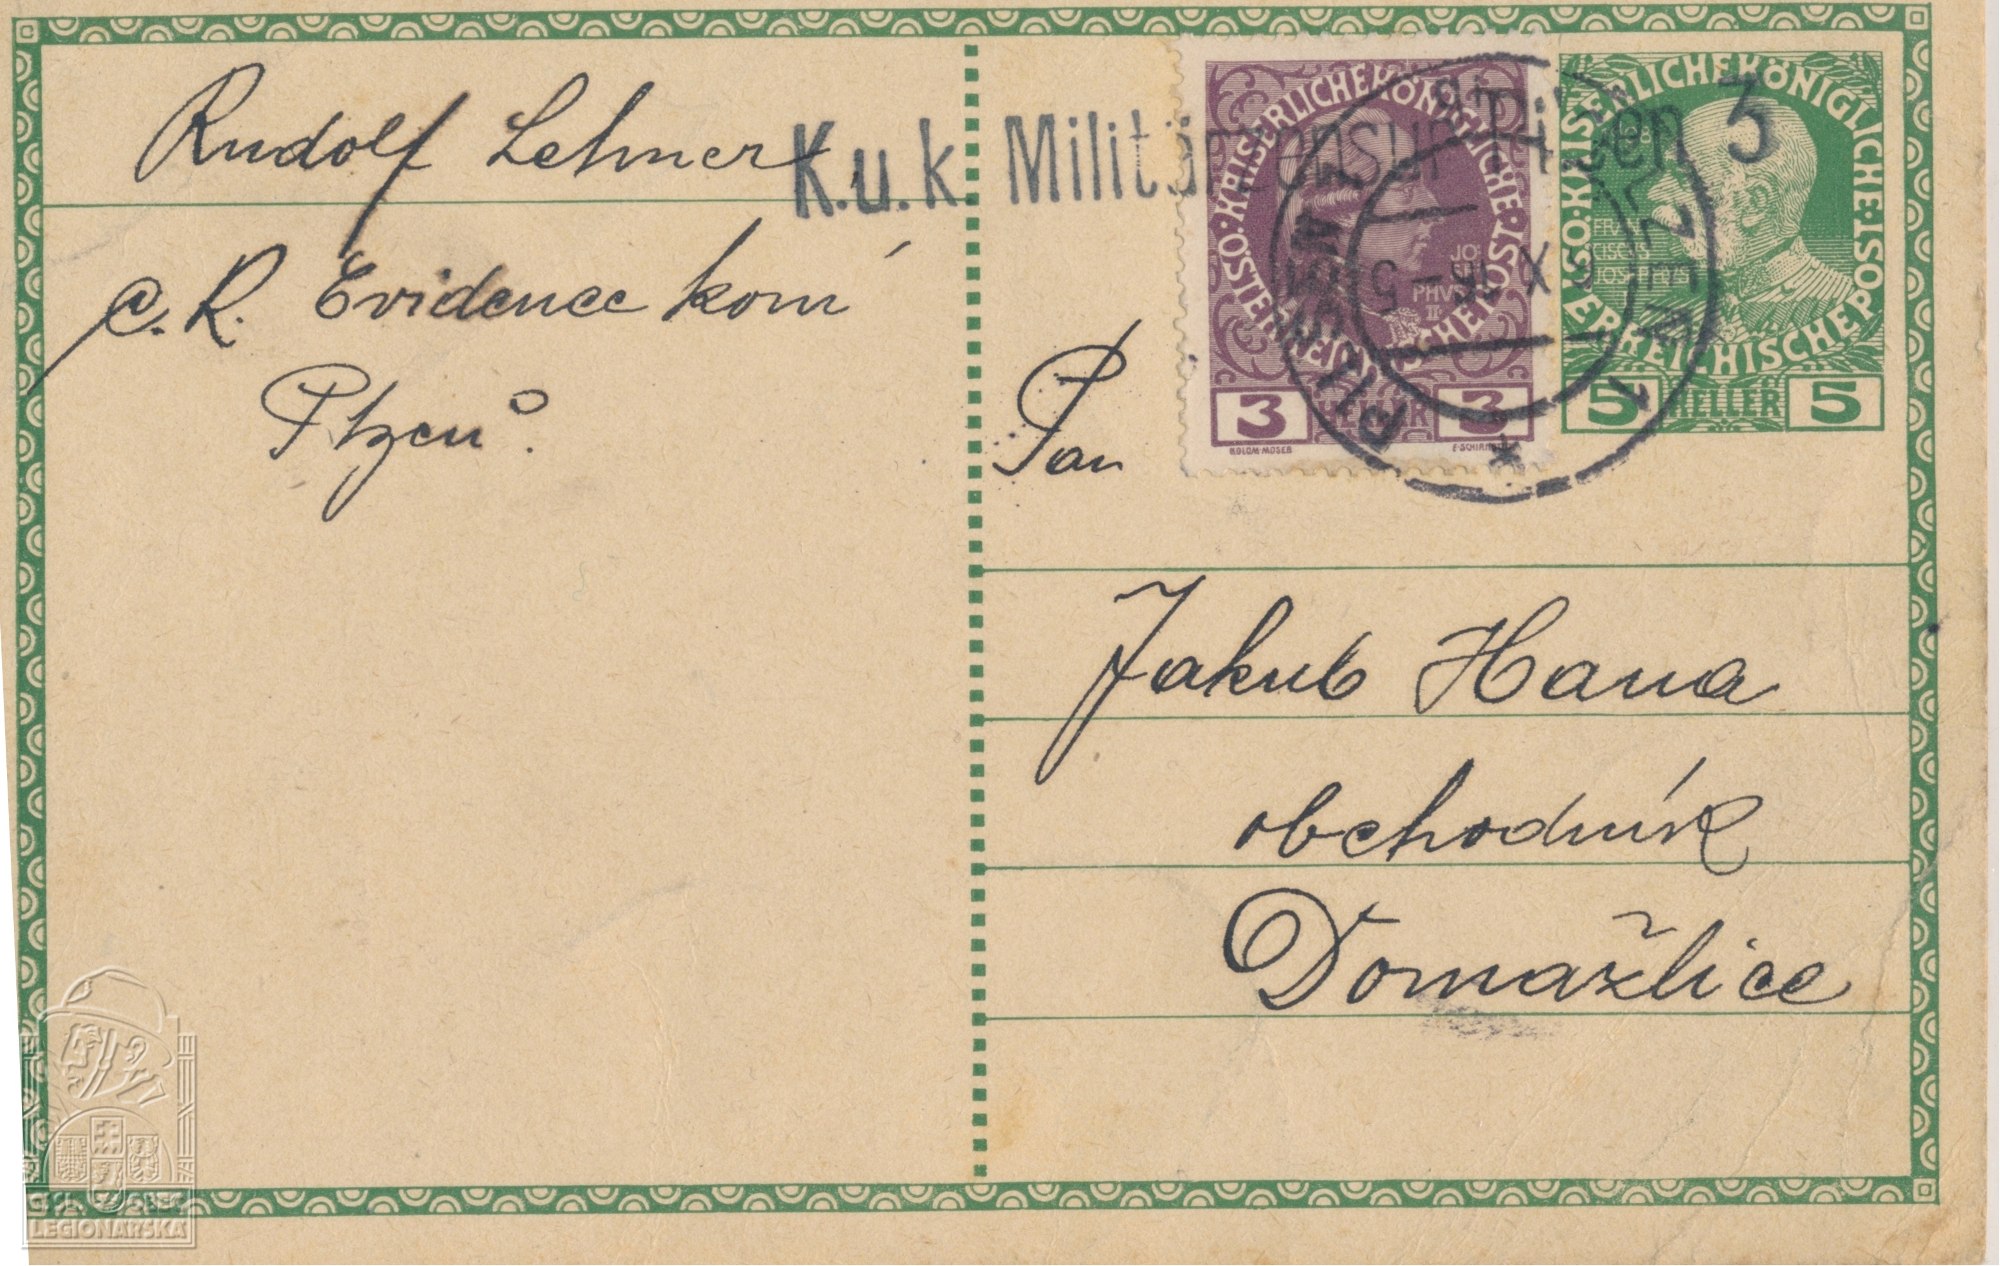 Rudolf Lehner,
c. k. Evidence kom
Plzeň.
K.u.k. Militärzensur Pilsen 3
KAISERLICHE KÖNIGLICHE ÖSTERREICHISCHE POST
PHVS
III
3 HELLER 3
KOLOM·MOSER
KAISERLICHE KÖNIGLICHE ÖSTERREICHISCHE POST
FRAN
CISCVS
IOSEPHVS
5 HELLER 5
PILSEN 1
PLZEŇ 1
X 16 - 5
Pan
Jakub Hana
obchodník
Domažlice
ČSL. OBEC
LEGIONÁŘSKÁ